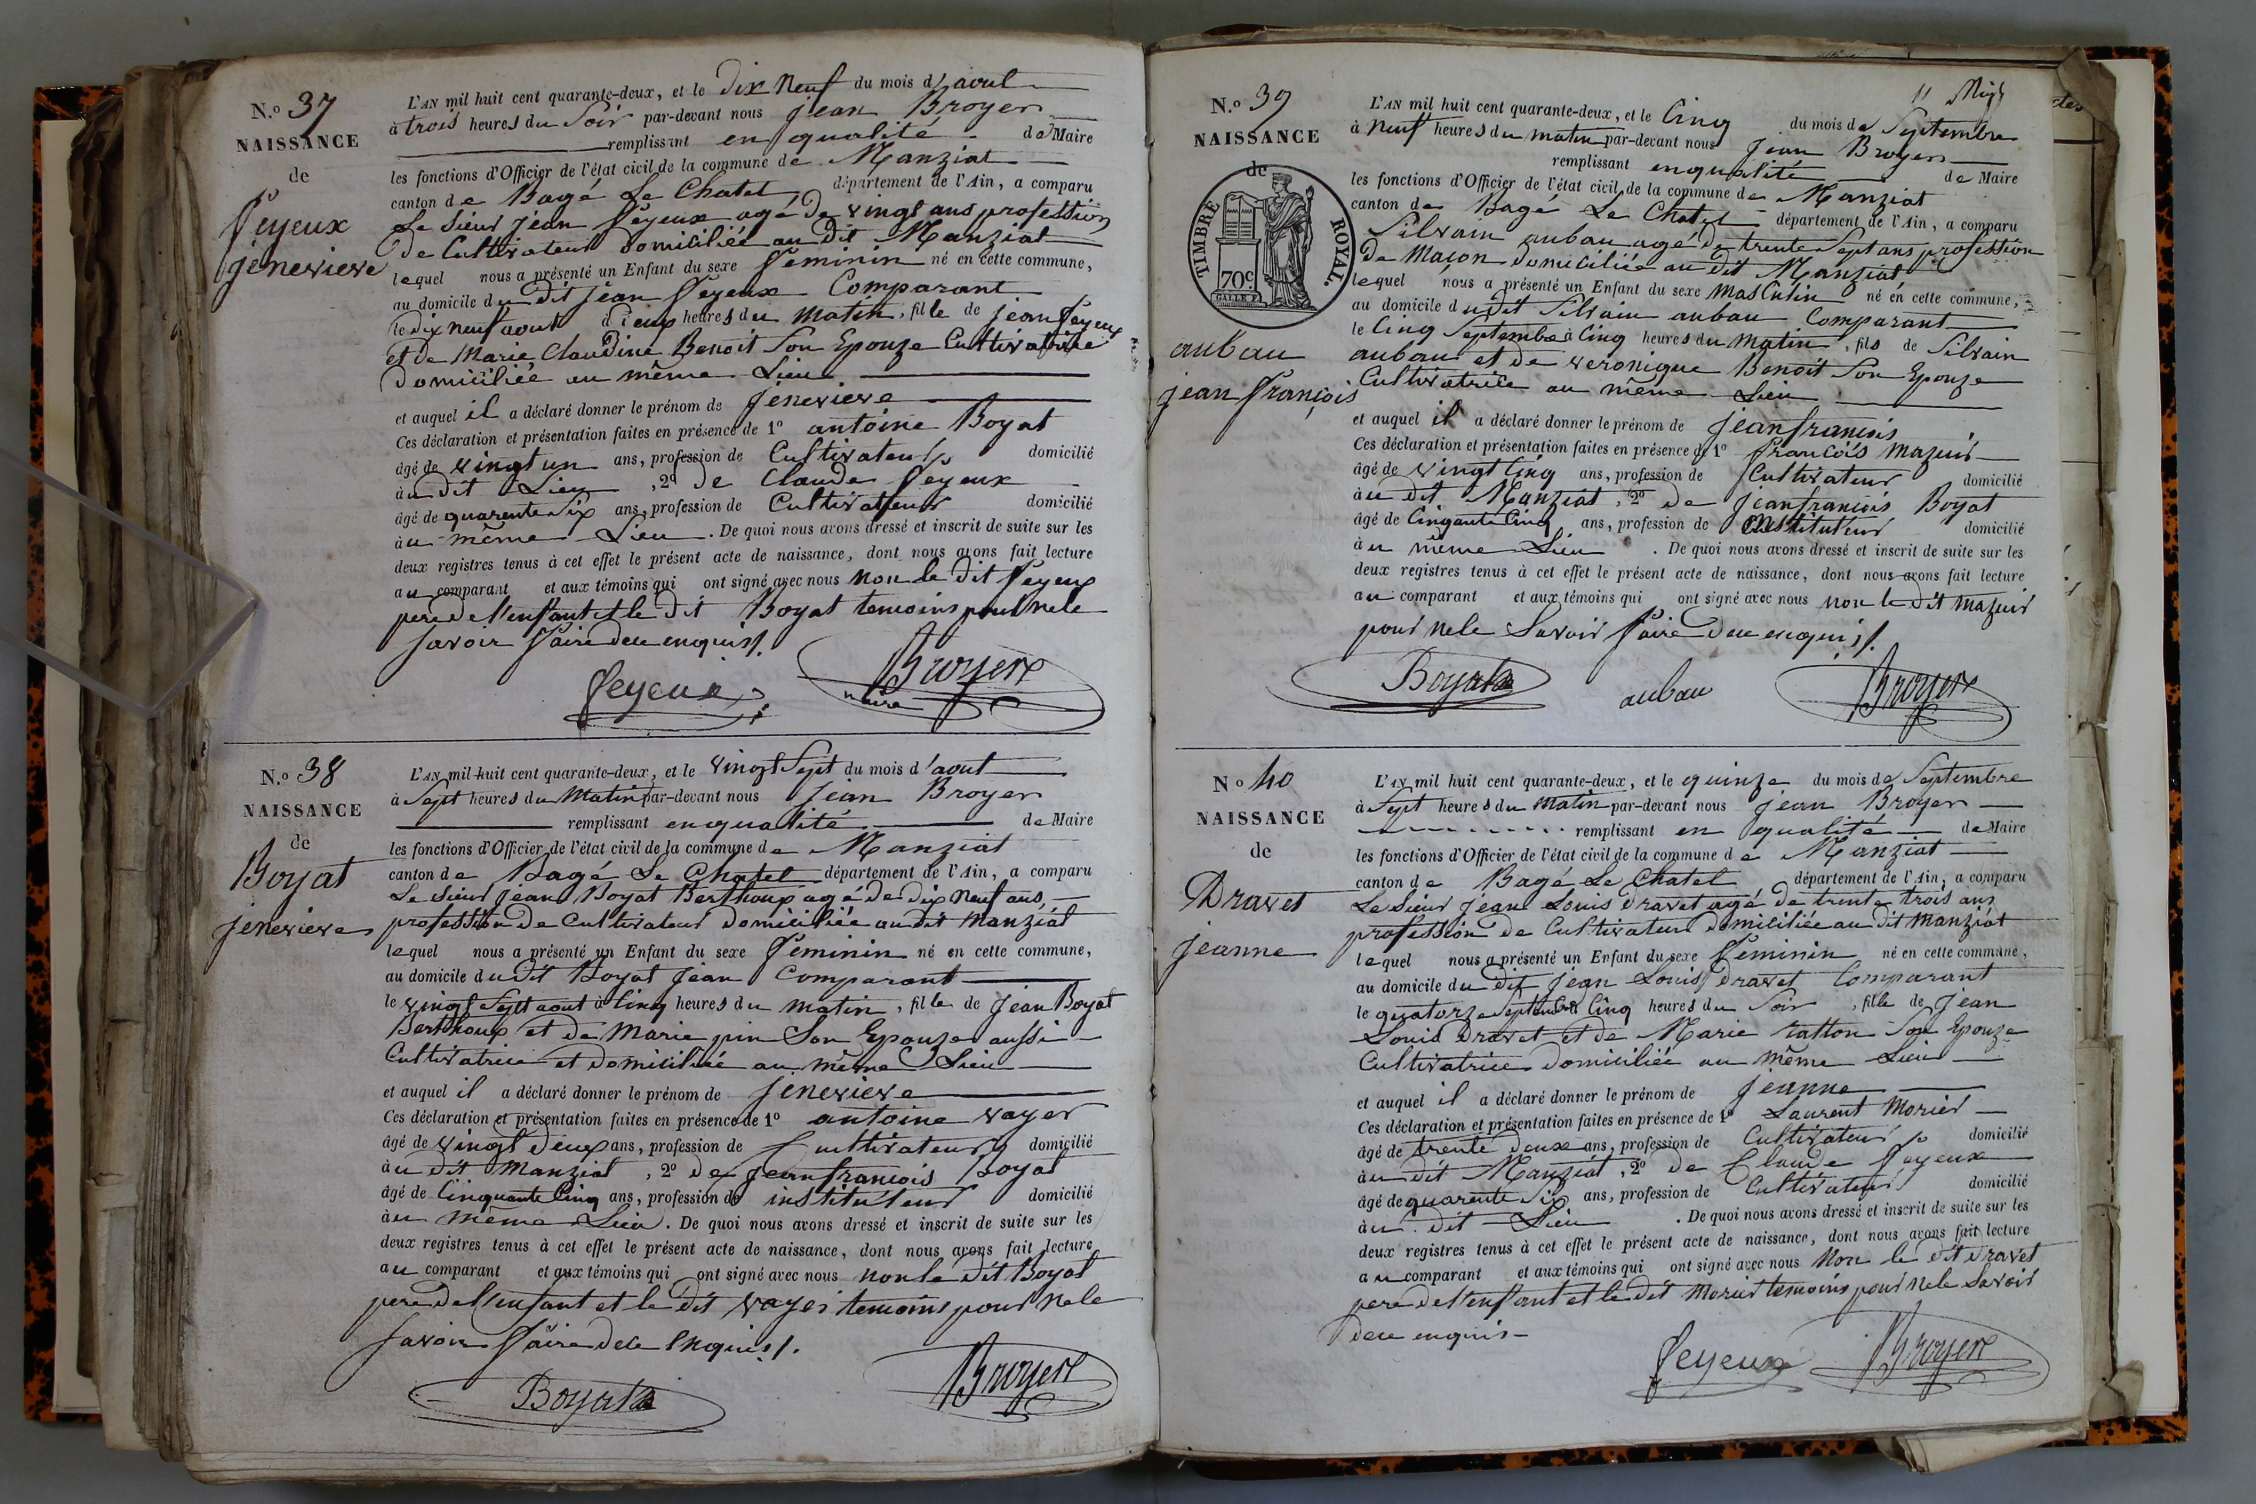 N.o 37
NAISSANCE
de
feyeux
jenevieve
L'AN mil huit cent quarante-deux, et le dix neuf du mois d'aout
à trois heures du Soir par-devant nous jean Broyer
remplissant en qualité de Maire
les fonctions d'Officier de l'état civil de la commune de Manziat
canton de Bagé Le Chatel département de l'Ain, a comparu
Le Sieur jean feyeux agé de vingt ans profession
de Cultivateur domiciliée au dit Manziat
lequel nous a présenté un Enfant du sexe feminin né en cette commune,
au domicile du dit jean feyeux Comparant
le dix neuf aout à deux heures du matin, fille de jean feyeux
et de Marie Claudine Benoit Son Epouze Cultivatrice
domiciliée au même Lieu
et auquel il a déclaré donner le prénom de jenevieve
Ces déclaration et présentation faites en présence de 1o antoine Boyat
âgé de vingt un ans, profession de Cultivateur domicilié
au dit Lieu, 2o de Claude feyeux
âgé de quarente Six ans, profession de Cultivateur domicilié
au même Lieu. De quoi nous avons dressé et inscrit de suite sur les
deux registres tenus à cet effet le présent acte de naissance, dont nous avons fait lecture
au comparant et aux témoins qui ont signé avec nous non le dit feyeux
pere de l'enfant et le dit Boyat temoins pour ne le
Savoir faire de ce enquis
feyeux
Broyer
maire
N.o 38
NAISSANCE
de
Boyat
jenevieve
L'AN mil huit cent quarante-deux, et le vingt Sept du mois d'aout
à Sept heures du Matin par-devant nous jean Broyer
remplissant en qualité de Maire
les fonctions d'Officier de l'état civil de la commune de Manziat
canton de Bagé Le Chatel département de l'Ain, a comparu
Le Sieur jean Boyat Berthoux agé de dix neuf ans,
profession de Cultivateur domiciliée au dit Manziat
lequel nous a présenté un Enfant du sexe feminin né en cette commune,
au domicile du dit Boyat jean Comparant
le vingt Sept aout à Cinq heures du matin, fille de jean Boyat
Berthoux et de Marie pin Son Epouze aussi
Cultivatrice et domiciliée au même Lieu
et auquel il a déclaré donner le prénom de jenevieve
Ces déclaration et présentation faites en présence de 1o antoine vayer
âgé de vingt deux ans, profession de Cultivateur domicilié
au dit Manziat, 2o de jeanfrancois Boyat
âgé de Cinquante Cinq ans, profession de instituteur domicilié
au même Lieu. De quoi nous avons dressé et inscrit de suite sur les
deux registres tenus à cet effet le présent acte de naissance, dont nous avons fait lecture
au comparant et aux témoins qui ont signé avec nous non le dit Boyat
pere de l'enfant et le dit vayer temoins pour ne le
Savoir faire de ce Enquis
Boyat
Broyer
11
N.o 39
NAISSANCE
de
TIMBRE ROYAL.
70c
aubau
jean françois
L'AN mil huit cent quarante-deux, et le Cinq du mois de Septembre
à neuf heures du matin par-devant nous jean Broyer
remplissant en qualité de Maire
les fonctions d'Officier de l'état civil de la commune de Manziat
canton de Bagé Le Chatel département de l'Ain, a comparu
Silvain aubau agé de trente Sept ans profession
de Maçon domiciliée au dit Manziat
lequel nous a présenté un Enfant du sexe masculin né en cette commune,
au domicile du dit Silvain aubau Comparant
le Cinq Septembre à Cinq heures du matin, fils de Silvain
aubau et de veronique Benoit Son Epouze
Cultivatrice au même Lieu
et auquel il a déclaré donner le prénom de jeanfrancois
Ces déclaration et présentation faites en présence de 1o francois Mazuir
âgé de vingt Cinq ans, profession de Cultivateur domicilié
au dit Manziat, 2o de jeanfrancois Boyat
âgé de Cinquante Cinq ans, profession de instituteur domicilié
au même Lieu. De quoi nous avons dressé et inscrit de suite sur les
deux registres tenus à cet effet le présent acte de naissance, dont nous avons fait lecture
au comparant et aux témoins qui ont signé avec nous non le dit mazuir
pour ne le Savoir faire de ce enquis
Boyat
aubau
Broyer
No 40
NAISSANCE
de
Dravet
jeanne
L'AN mil huit cent quarante-deux, et le quinze du mois de Septembre
à Sept heures du Matin par-devant nous jean Broyer
remplissant en qualité de Maire
les fonctions d'Officier de l'état civil de la commune de Manziat
canton de Bagé Le Chatel département de l'Ain, a comparu
Le Sieur jean Louis dravet agé de trente trois ans
profession de Cultivateur domiciliée au dit Manziat
lequel nous a présenté un Enfant du sexe feminin né en cette commune,
au domicile du dit jean Louis dravet Comparant
le quatorze Septembre à Cinq heures du Soir, fille de jean
Louis Dravet et de Marie ratton Son Epouze
Cultivatrice domiciliée au même Lieu
et auquel il a déclaré donner le prénom de jeanne
Ces déclaration et présentation faites en présence de 1o Laurent Morier
âgé de trente deux ans, profession de Cultivateur domicilié
au dit Manziat, 2o de Claude feyeux
âgé de quarente Six ans, profession de Cultivateur domicilié
au dit Lieu. De quoi nous avons dressé et inscrit de suite sur les
deux registres tenus à cet effet le présent acte de naissance, dont nous avons fait lecture
au comparant et aux témoins qui ont signé avec nous Non le dit dravet
pere de l'enfant et le dit Morier temoins pour ne le Savoir
de ce enquis
feyeux
Broyer